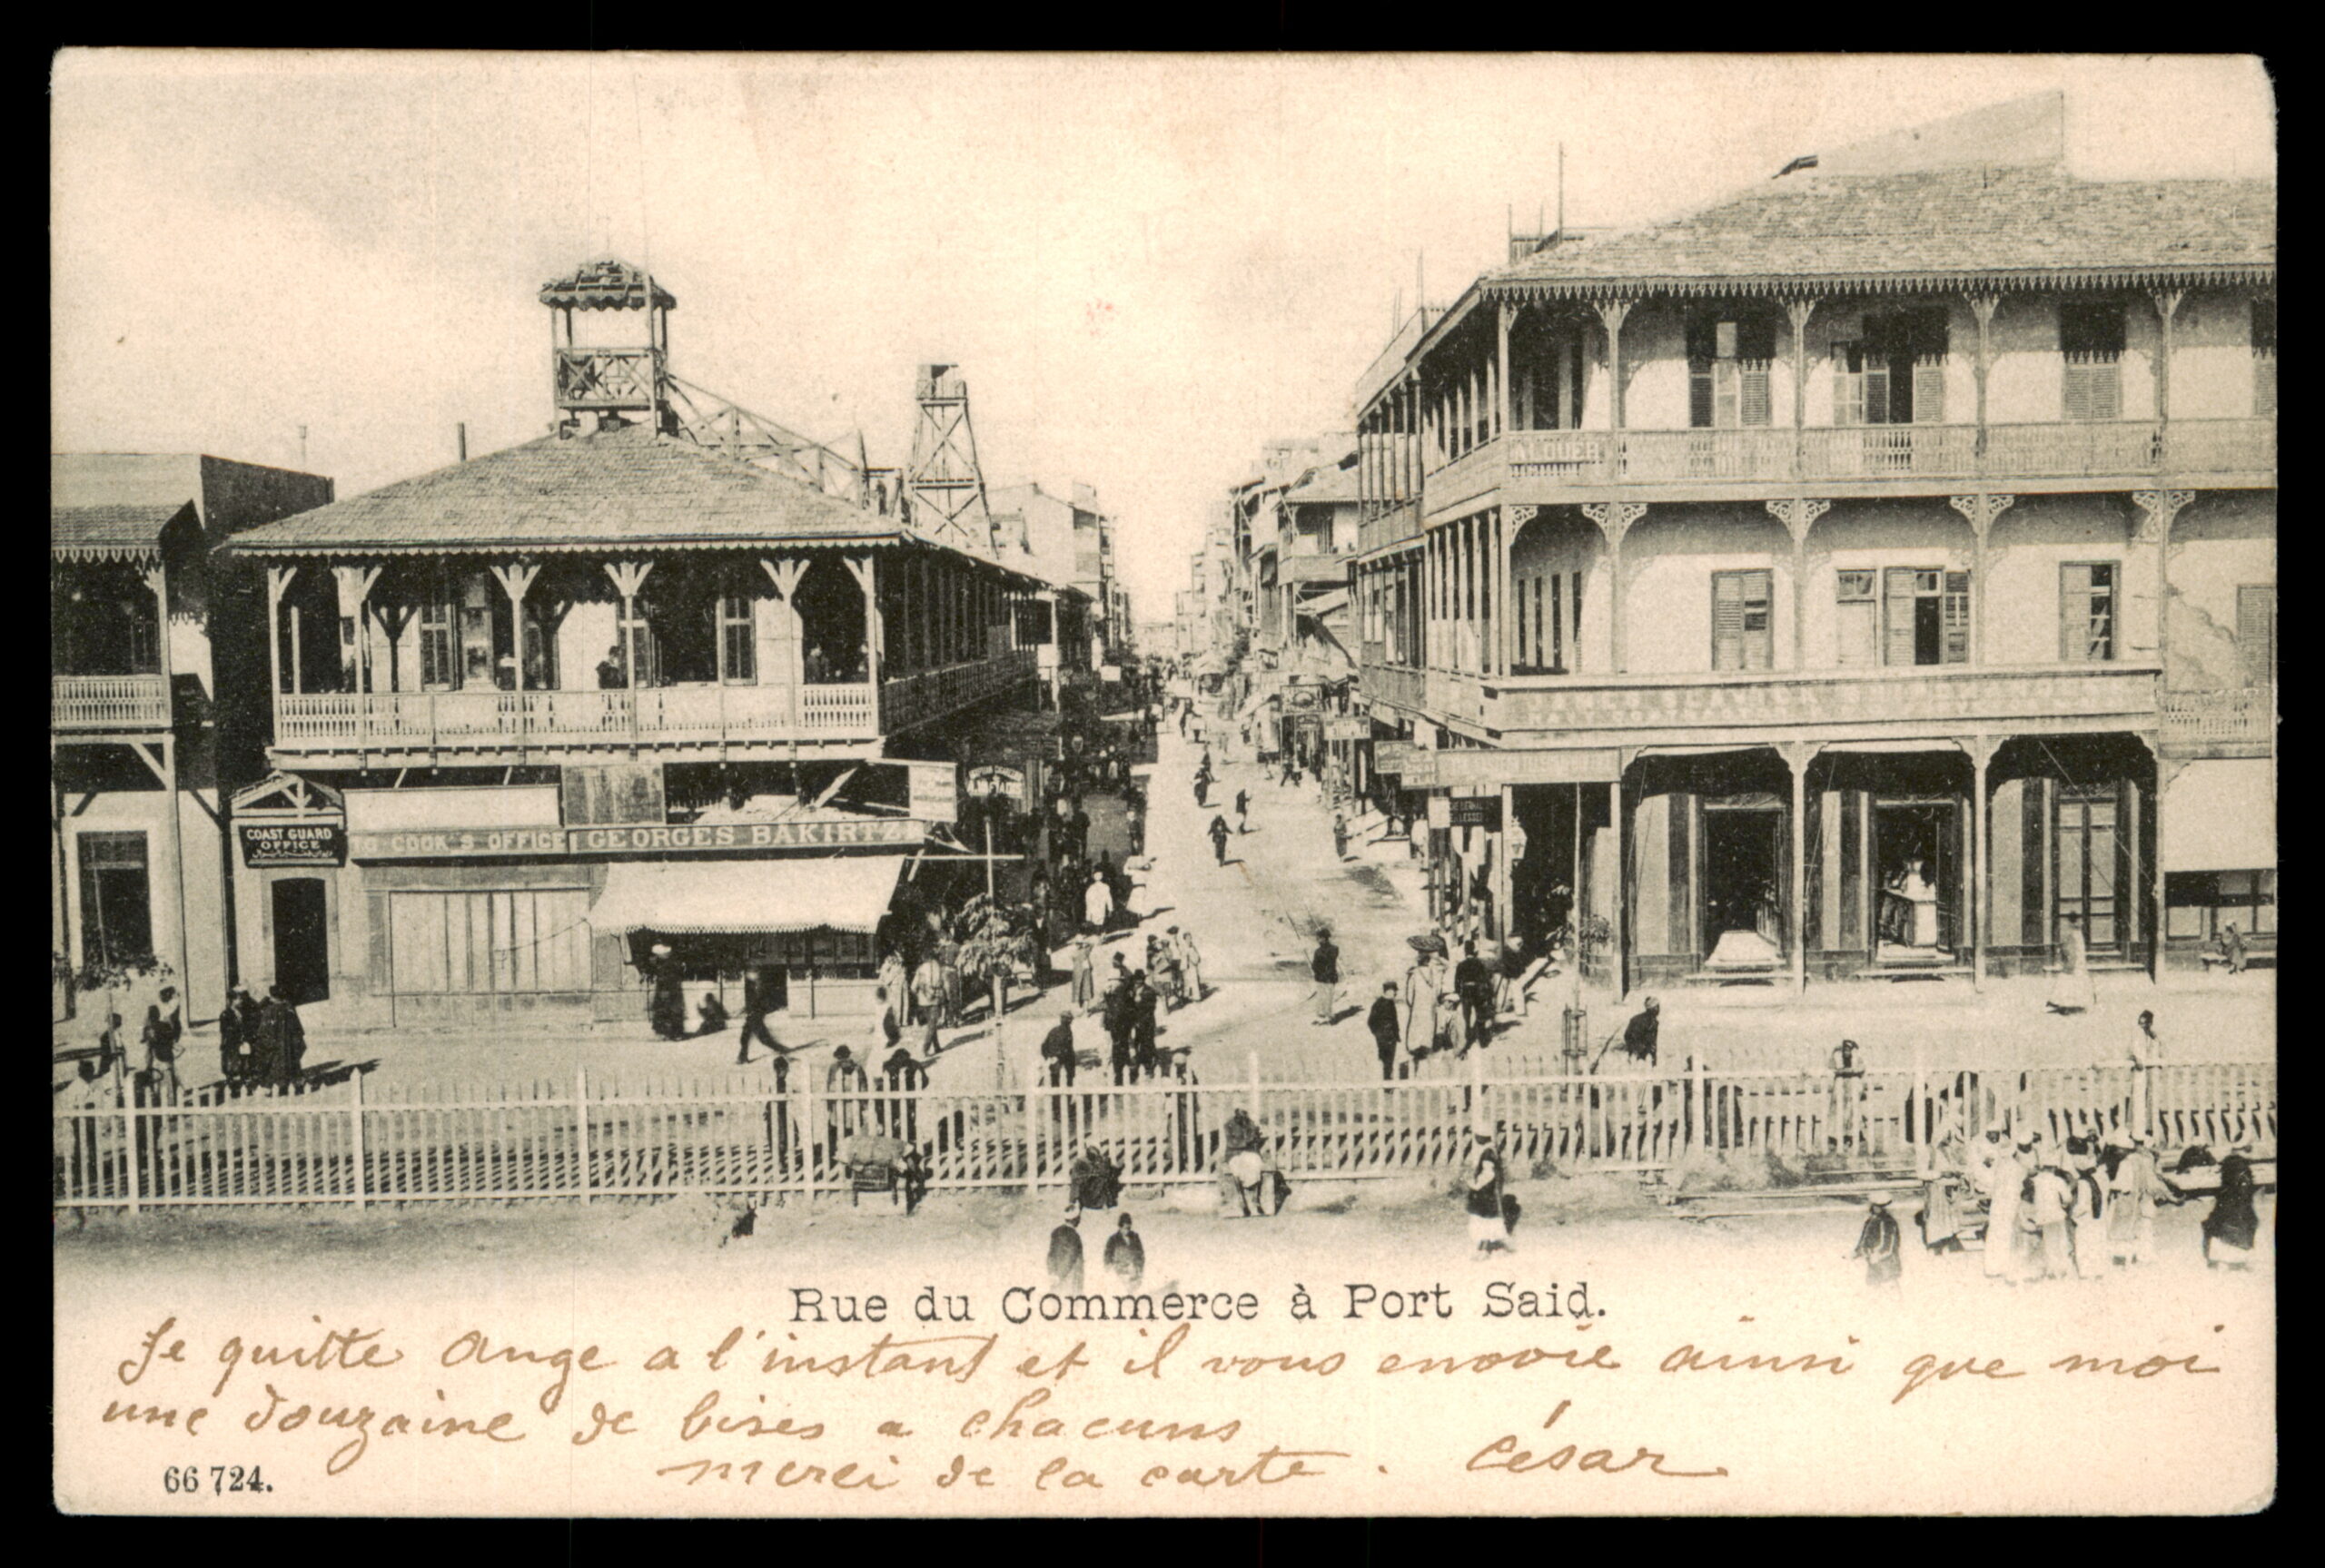 ALQUER
COAST GUARD
OFFICE
TO COOK'S OFFICE
GEORGES BAKIRTZI
Rue du Commerce à Port Said.
Je quitte Ange a l'instant et il vous envoie ainsi que moi
une douzaine de bises a chacuns
merci de la carte. César
66 724.